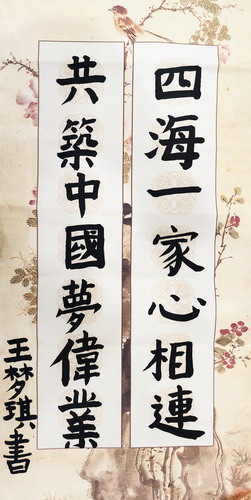 四海一家心相連
共築中國夢偉業
王梦琪書